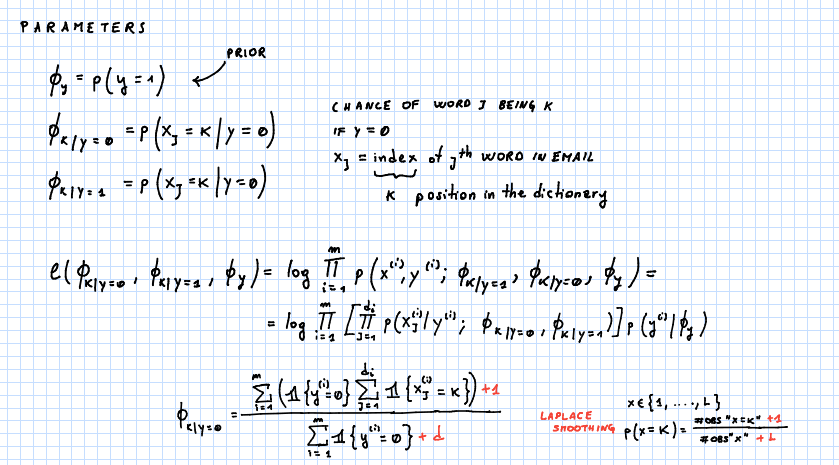 PARAMETERS
PRIOR
ϕ_y = p(y = 1)
ϕ_{K|y=0} = p(x_J = K | y = 0)
ϕ_{K|y=1} = p(x_J = K | y = 0)
CHANCE OF WORD J BEING K
IF y = 0
x_J = index of J^th WORD IN EMAIL
K position in the dictionary
ℓ(ϕ_{K|y=0}, ϕ_{K|y=1}, ϕ_y) = log ∏_{i=1}^{m} p(x^{(i)}, y^{(i)}; ϕ_{K|y=1}, ϕ_{K|y=0}, ϕ_y) =
= log ∏_{i=1}^{m} [∏_{J=1}^{d_i} p(x_J^{(i)} | y^{(i)}; ϕ_{K|y=0}, ϕ_{K|y=1})] p(y^{(i)} | ϕ_y)
ϕ_{K|y=0} = (∑_{i=1}^{m} (𝟙{y^{(i)}=0} ∑_{J=1}^{d_i} 𝟙{x_J^{(i)} = K}) + 1) / (∑_{i=1}^{m} 𝟙{y^{(i)} = 0} + d)
LAPLACE
SMOOTHING
x ∈ {1, ...., L}
p(x = K) = (#OBS "x=K" + 1) / (#OBS "x" + L)